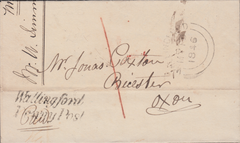 Mr. W. Simm
Mr. Jonas Paxton
Bicester
Oxon
Wallingford
Penny Post
1846